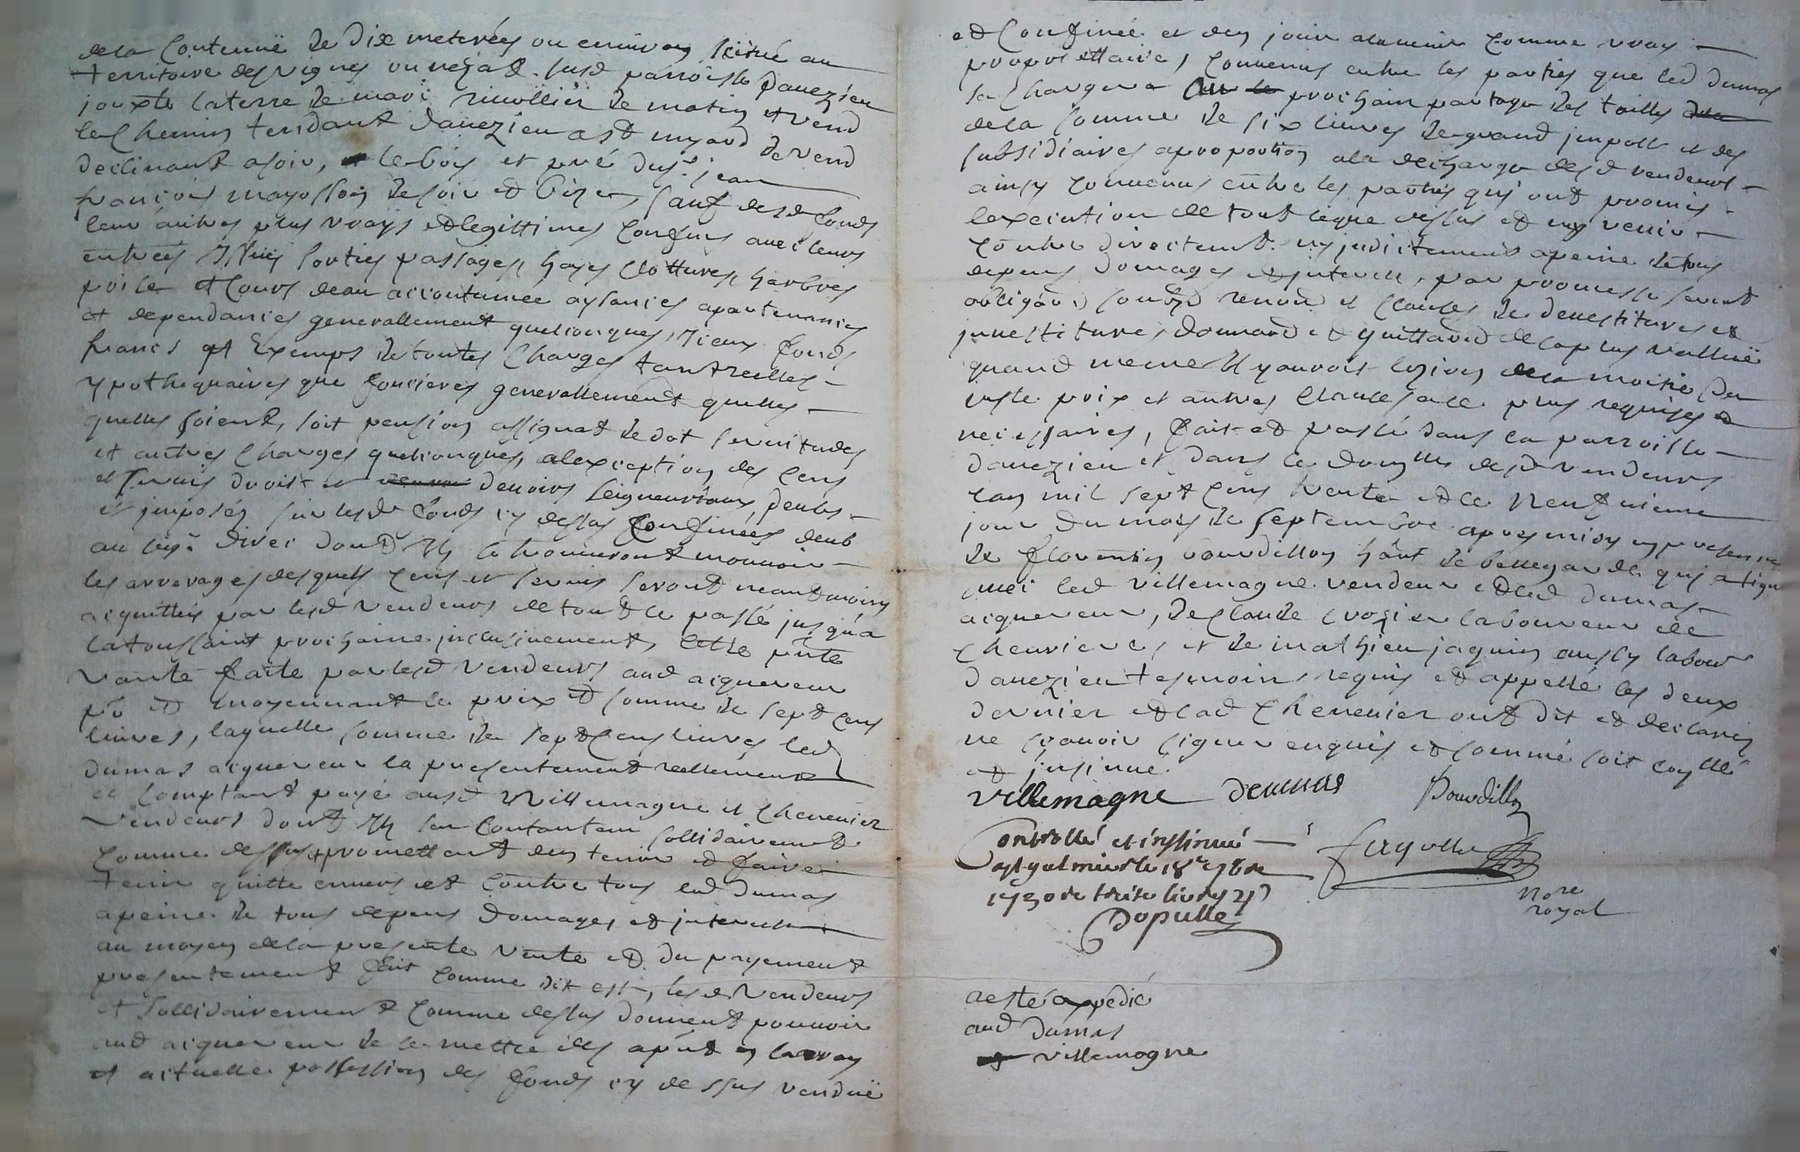 dela Contenuë de dix meterées ou environ scitué au
territoire des vignes ou negas. susd parroisse Davezieu
jouxte la terre de marï de matin & vend
le chemin tendant davezieu a de vend
declinant a soir, le bois et pré du sr. jean
françois mayosson de soir et bize, sauf desd fonds
leur autres plus vrays et legittimes confins avec leurs
entrées Issuës sorties passages, hayes clottures, herbres
poile et cours deau accoutumée aysances apartenances
et dependances generallement quelconques, Iceux fonds
francs et Exemps de toutes charges tant reelles
ypothequaires que foncieres generallement quelles
quelles soient, soit pension assignat de dot servitudes
et autres charges quelconques, alexception des cens
et servis droit et devoirs seigneuriaux, deubs
et imposés sur lesd fonds cy dessus Confinées deub
au sgr. direc dont Ils se trouveront mouvoir
les arrerages desquels cens et servis seront neantmoins
acquittés par lesd vendeurs de tout le passé jusqua
la toussaint prochaine inclusivement, cette pnte
vante faite par lesd vendeurs aud acquereur
po et moyennant le prix et somme de sept cens
livres, laquelle somme de sept cens livres led
dumas acquereur la presentement reellement
et comptant payé ausd Villemagne et Chenevier
vendeurs dont Ils sen contantent sollidairement
comme dessus promettent den tenir et faire
tenir quitte envers et contre tous led dumas
apeine de tous depens domages et interests
au moyen dela presente vente et du payement
presentement fait comme dit est, lesd Vendeurs
et sollidairement comme dessus donnent pouvoir
aud acquereur de se mettre des apnt en la vray
et actuelle possession des fonds cy dessus venduë
et Confiné et den jouir alavenir comme vray
propriettaire, convenus entre les parties que led dumas
se chargera prochain partage des tailles
dela somme de six livres de grand impost et des
subsidiaires aproportion ala decharge desd vendeurs
ainsy convenus entre les parties qui ont promis
lexecution de tout ceque dessus et ny venir
contre directemt. ny indirectement apeine de tous
depens domages et interests, par promesse serment
obligaon, renon et clauses de devestitures et
investitures, donnand et quittand de la plus valluë
quand meme Il y auroit lezion dela moitié du
juste prix et autres clauses a ce plus requises &
necessaires, fait et passé dans la parroisse
davezieu et dans le desd vendeurs
lan mil sept cens trente et le neufvieme
jour du mois de septembre apres midy en presence
de florensin bourdillon hânt de bellegarde qui a signé
avec led villemagne vendeur et led dumas
acquereur, de claude crozier laboureur de
chenviere, et de mathieu jaquin aussy labour
davezieu tesmoins requis et appellé les deux
dernier et lad Chenevier ont dit et declarés
ne sçavoir signer enquis et sommé soit coullé
et insinué.
Villemagne Deumas Bourdillon
Controllé et insinué fayolle
a st galmier le 18e 7bre nore
1730 royal
Dopulle
a esté expedié
aud Dumas
villemagne